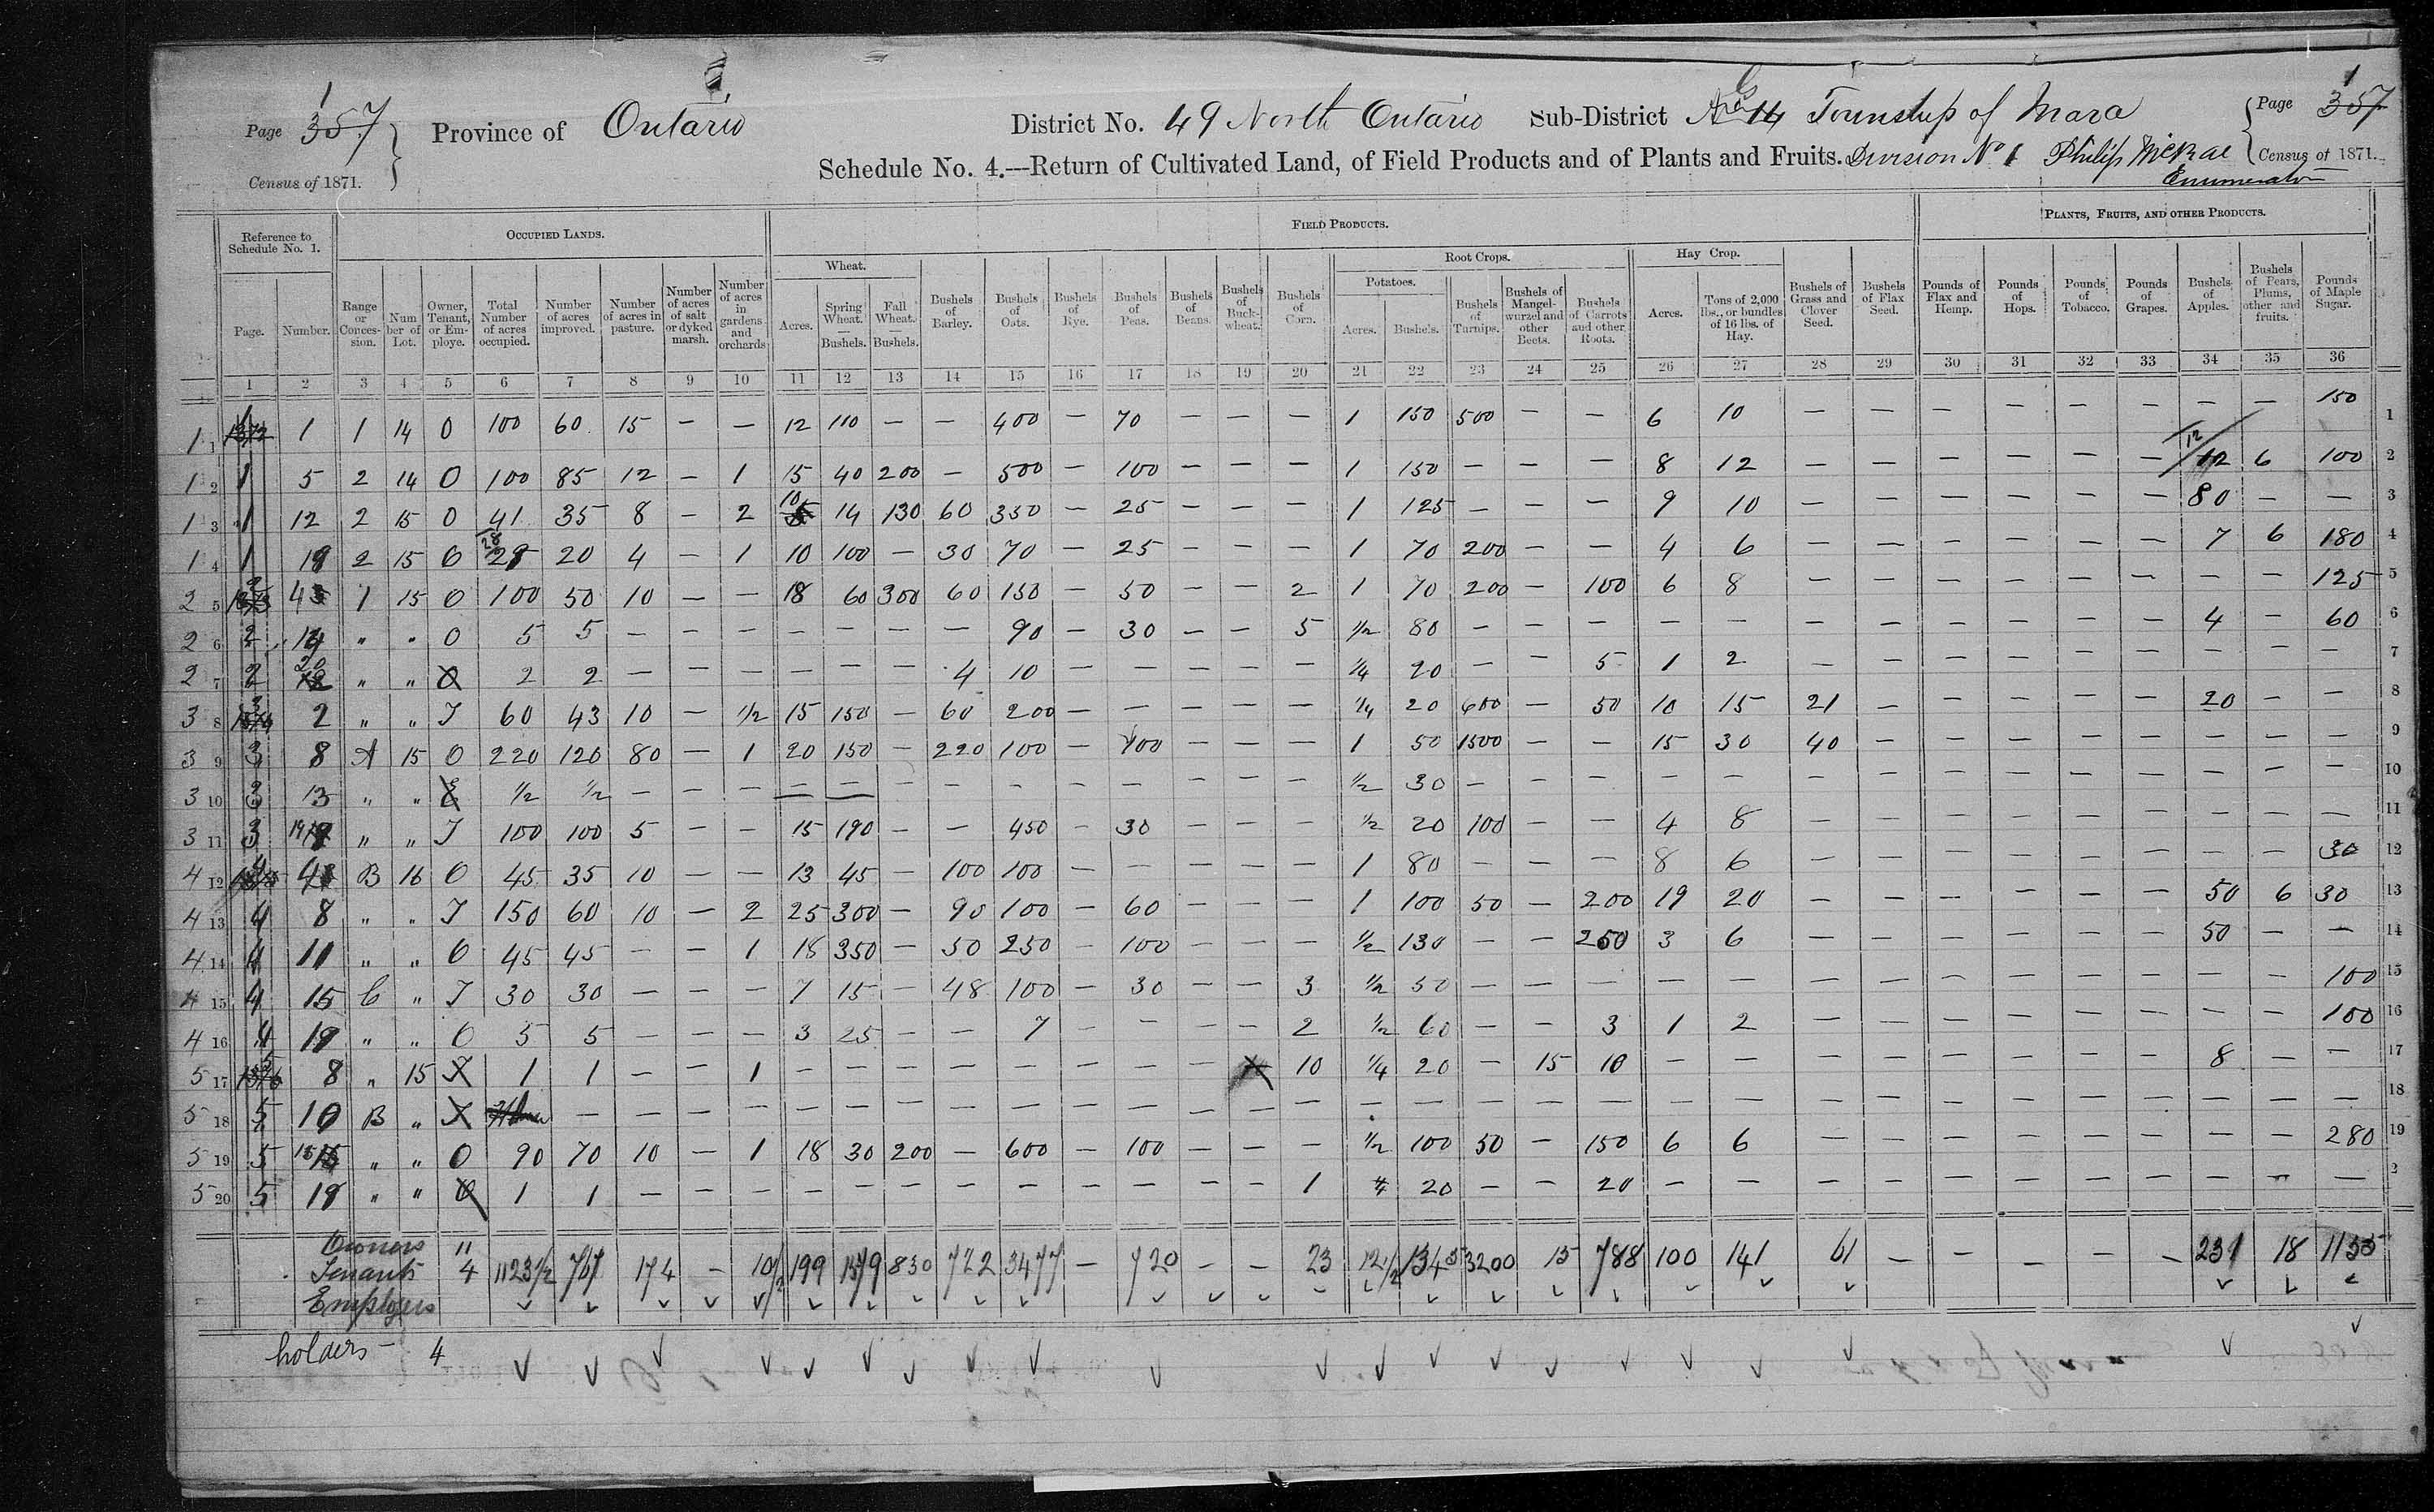 1
Page 357
Province of Ontario
District No. 49 North Ontario Sub-District Township of Mara
1
Page 357
Census of 1871.
Schedule No. 4.---Return of Cultivated Land, of Field Products and of Plants and Fruits. Division No 1 Philip McRae
Enumerator
Census of 1871.
Reference to Schedule No. 1.
OCCUPIED LANDS.
FIELD PRODUCTS.
PLANTS, FRUITS, AND OTHER PRODUCTS.
Wheat.
Root Crops.
Hay Crop.
Potatoes.
Page.
Number.
Range or Conces-sion.
Num ber of Lot.
Owner, Tenant, or Em-ploye.
Total Number of acres occupied.
Number of acres improved.
Number of acres in pasture.
Number of acres of salt or dyked marsh.
Number of acres in gardens and orchards
Acres.
Spring Wheat. Bushels.
Fall Wheat. Bushels.
Bushels of Barley.
Bushels of Oats.
Bushels of Rye.
Bushels of Peas.
Bushels of Beans.
Bushels of Buck-wheat.
Bushels of Corn.
Acres.
Bushels.
Bushels of Turnips.
Bushels of Mangel-wurzel and other Beets.
Bushels of Carrots and other Roots.
Acres.
Tons of 2,000 lbs., or bundles of 16 lbs. of Hay.
Bushels of Grass and Clover Seed.
Bushels of Flax Seed.
Pounds of Flax and Hemp.
Pounds of Hops.
Pounds of Tobacco.
Pounds of Grapes.
Bushels of Apples.
Bushels of Pears, Plums, other and fruits.
Pounds of Maple Sugar.
1 2 3 4 5 6 7 8 9 10 11 12 13 14 15 16 17 18 19 20 21 22 23 24 25 26 27 28 29 30 31 32 33 34 35 36
1 1 1 1 1 14 O 100 60 15 — — 12 110 — — 400 — 70 — — — 1 150 500 — — 6 10 — — — — — — — — 150 1
1 2 1 5 2 14 O 100 85 12 — 1 15 40 200 — 500 — 100 — — — 1 150 — — — 8 12 — — — — — — 12 6 100 2
1 3 1 12 2 15 O 41 35 8 — 2 10 14 130 60 350 — 25 — — — 1 125 — — — 9 10 — — — — — — 80 — — 3
1 4 1 19 2 15 O 28 20 4 — 1 10 100 — 30 70 — 25 — — — 1 70 200 — — 4 6 — — — — — — 7 6 180 4
2 5 2 1 15 O 100 50 10 — — 18 60 300 60 150 — 50 — — 2 1 70 200 — 100 6 8 — — — — — — — — 125 5
2 6 2 " " O 5 5 — — — — — — — 90 — 30 — — 5 1/2 80 — — — — — — — — — — — 4 — 60 6
2 7 2 20 " " O 2 2 — — — — — — 4 10 — — — — — 1/4 20 — — 5 1 2 — — — — — — — — — 7
3 8 3 2 " " T 60 43 10 — 1/2 15 150 — 60 200 — — — — — 1/4 20 600 — 50 10 15 21 — — — — — 20 — — 8
3 9 3 8 A 15 O 220 120 80 — 1 20 150 — 220 100 — 100 — — — 1 50 1500 — — 15 30 40 — — — — — — — — 9
3 10 3 13 " " E 1/2 1/2 — — — — — — — — — — — — — 1/2 30 — — — — — — — — — — — — — — 10
3 11 3 19 " " T 100 100 5 — — 15 190 — — 450 — 30 — — — 1/2 20 100 — — 4 8 — — — — — — — — — 11
4 12 4 B 16 O 45 35 10 — — 13 45 — 100 100 — — — — — 1 80 — — — 8 6 — — — — — — — — 30 12
4 13 4 8 " " T 150 60 10 — 2 25 300 — 90 100 — 60 — — — 1 100 50 — 200 19 20 — — — — — — 50 6 30 13
4 14 4 11 " " O 45 45 — — 1 18 350 — 50 250 — 100 — — — 1/2 130 — — 250 3 6 — — — — — — 50 — — 14
4 15 4 15 C " T 30 30 — — — 7 15 — 48 100 — 30 — — 3 1/2 50 — — — — — — — — — — — — — 100 15
4 16 4 19 " " O 5 5 — — — 3 25 — — 7 — — — — 2 1/2 60 — — 3 1 2 — — — — — — — — 100 16
5 17 5 8 " 15 T 1 1 — — 1 — — — — — — — — 10 1/4 20 — 15 10 — — — — — — — — 8 — — 17
5 18 5 10 B " T — — — — — — — — — — — — — — — — — — — — — — — — — — — — — — 18
5 19 5 15 " " O 90 70 10 — 1 18 30 200 — 600 — 100 — — — 1/2 100 50 — 150 6 6 — — — — — — — — 280 19
5 20 5 19 " " O 1 1 — — — — — — — — — — — — 1 20 — — 20 — — — — — — — — — — — 2
Owners 11
Tenants 4 1123 1/2 761 174 — 10 1/2 199 1579 830 722 3477 — 720 — — 23 12 1/2 1345 3200 15 788 100 141 61 — — — — — 231 18 1155
Employees
holders — 4